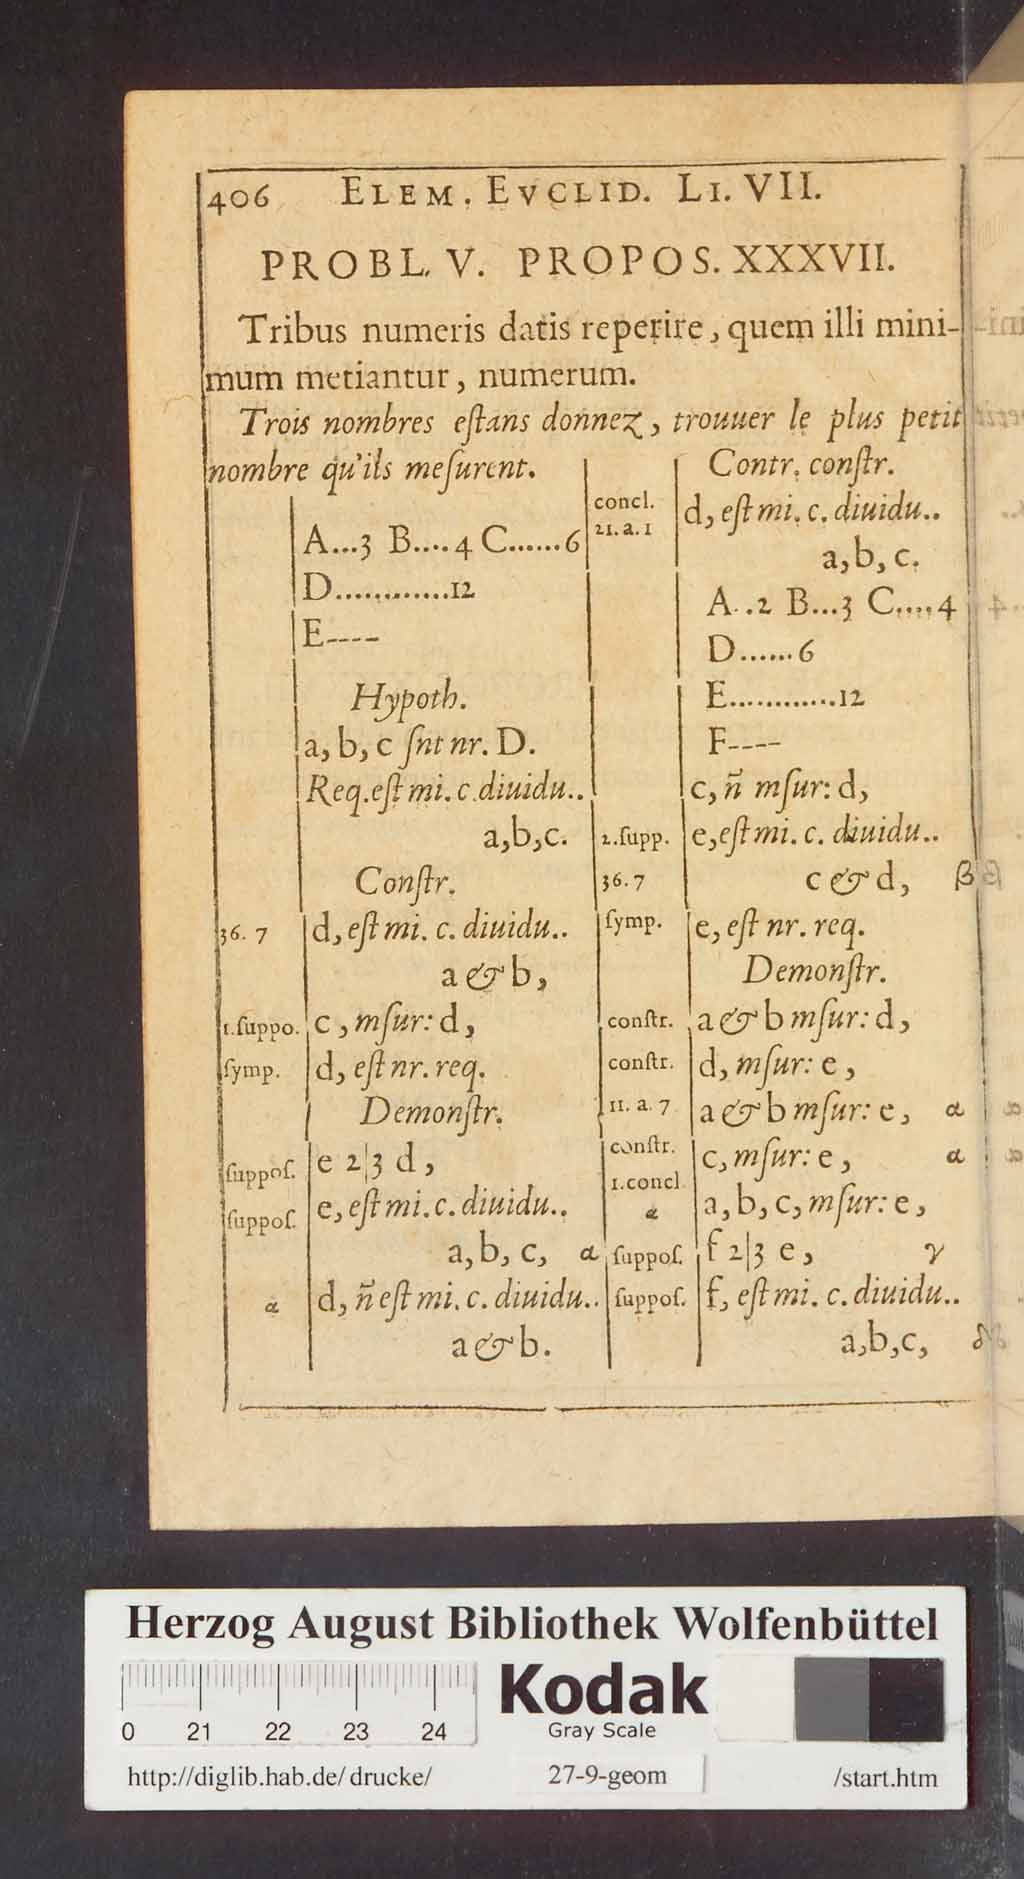 406 ELEM. EVCLID. LI. VII.
PROBL. V. PROPOS. XXXVII.
Tribus numeris datis reperire, quem illi mini-
mum metiantur, numerum.
Trois nombres eſtans donnez, trouuer le plus petit
nombre qu'ils meſurent.
A...3 B....4 C......6
D............12
E----
Hypoth.
a, b, c ſnt nr. D.
Req. eſt mi. c. diuidu..
a, b, c.
Conſtr.
36. 7 d, eſt mi. c. diuidu..
a & b,
1. ſuppo. c, mſur: d,
ſymp. d, eſt nr. req.
Demonſtr.
ſuppoſ. e 2|3 d,
ſuppoſ. e, eſt mi. c. diuidu..
a, b, c, α
α d, ñ eſt mi. c. diuidu..
a & b.
Contr. conſtr.
concl. d, eſt mi. c. diuidu..
21. a. 1
a, b, c.
A..2 B...3 C....4
D......6
E............12
F----
c, ñ mſur: d,
2. ſupp. e, eſt mi. c. diuidu..
36. 7 c & d, β
ſymp. e, eſt nr. req.
Demonſtr.
conſtr. a & b mſur: d,
conſtr. d, mſur: e,
11. a. 7 a & b mſur: e, α
conſtr. c, mſur: e, α
1. concl
α a, b, c, mſur: e,
ſuppoſ. f 2|3 e, γ
ſuppoſ. f, eſt mi. c. diuidu..
a, b, c, δ
Herzog August Bibliothek Wolfenbüttel
0 21 22 23 24
Kodak
Gray Scale
http://diglib.hab.de/drucke/ 27-9-geom /start.htm